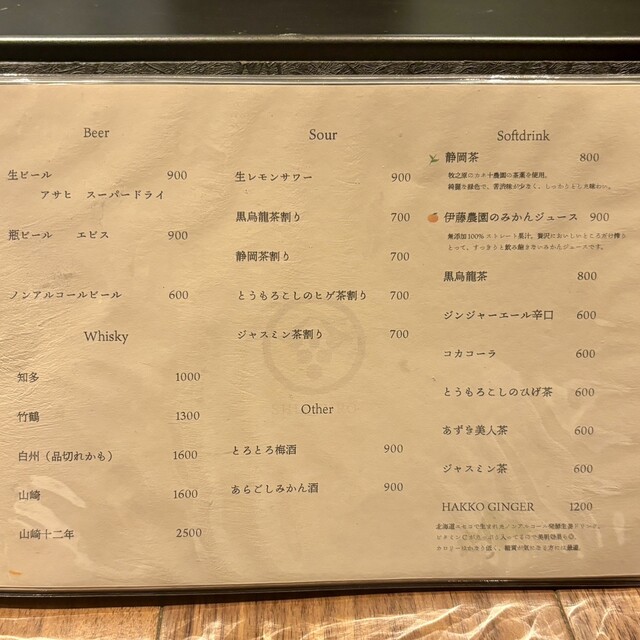 Beer
生ビール 900
アサヒ スーパードライ
瓶ビール エビス 900
ノンアルコールビール 600
Whisky
知多 1000
竹鶴 1300
白州（品切れかも） 1600
山崎 1600
山崎十二年 2500
Sour
生レモンサワー 900
黒烏龍茶割り 700
静岡茶割り 700
とうもろこしのヒゲ茶割り 700
ジャスミン茶割り 700
Other
とろとろ梅酒 900
あらごしみかん酒 900
Softdrink
静岡茶 800
牧之原のカネ十農園の茶葉を使用。
綺麗な緑色で、苦渋味が少なく、しっかりとした味わい。
伊藤農園のみかんジュース 900
無添加100%ストレート果汁。贅沢においしいところだけ搾り
とって、すっきりと飲み飽きないみかんジュースです。
黒烏龍茶 800
ジンジャーエール辛口 600
コカコーラ 600
とうもろこしのひげ茶 600
あずき美人茶 600
ジャスミン茶 600
HAKKO GINGER 1200
北海道ニセコで生まれたノンアルコール発酵生姜ドリンク。
カロリーはかなり低く、糖質が気になる方には最適。